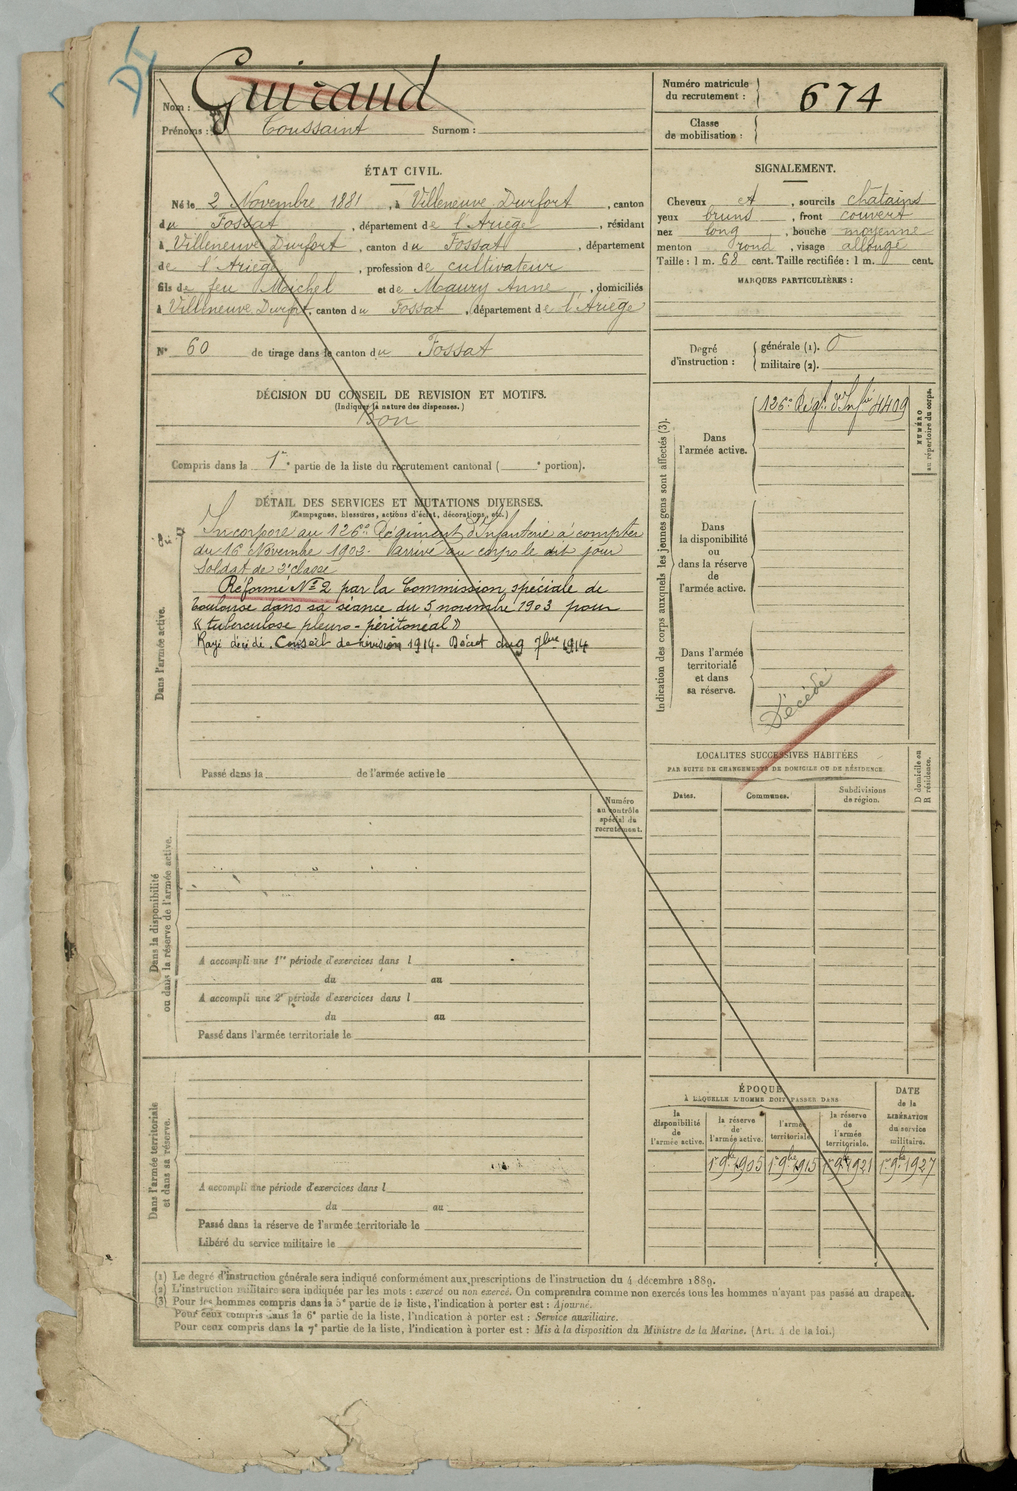 Nom : Guiraud
Prénoms : Toussaint Surnom :
Numéro matricule
du recrutement : 674
Classe
de mobilisation :
ÉTAT CIVIL.
Né le 2 Novembre 1881, à Villeneuve Durfort, canton
du Fossat, département de l'Ariège, résidant
à Villeneuve Durfort, canton du Fossat, département
de l'Ariège, profession de cultivateur
fils de feu Michel et de Maury Anne, domiciliés
à Villeneuve Durfort, canton du Fossat, département de l'Ariège
N° 60 de tirage dans le canton du Fossat
SIGNALEMENT.
Cheveux et, sourcils chatains
yeux bruns, front couvert
nez long, bouche moyenne
menton rond, visage allongé
Taille : 1 m. 68 cent. Taille rectifiée : 1 m. cent.
MARQUES PARTICULIÈRES :
Degré
d'instruction :
générale (1). 0
militaire (2).
DÉCISION DU CONSEIL DE REVISION ET MOTIFS.
(Indiquer la nature des dispenses.)
Bon
Compris dans la 1re partie de la liste du recrutement cantonal ( e portion).
DÉTAIL DES SERVICES ET MUTATIONS DIVERSES.
(Campagnes, blessures, actions d'éclat, décorations, etc.)
Dans l'armée active.
Incorporé au 126e Régiment d'Infanterie à compter
du 16 Novembre 1902. Arrivé au corps le dit jour
Soldat de 2e classe
Réformé N° 2 par la Commission spéciale de
Toulouse dans sa séance du 5 novembre 1903 pour
« tuberculose pleuro-péritonéal »
Rayé décédé. Conseil de révision 1914. Décret du 9 7bre 1914
Passé dans la de l'armée active le
Indication des corps auxquels les jeunes gens sont affectés (3).
Dans
l'armée active.
126e Régt d'Infie 4409
NUMÉRO
au répertoire du corps.
Dans
la disponibilité
ou
dans la réserve
de
l'armée active.
Dans l'armée
territoriale
et dans
sa réserve.
Décédé
LOCALITÉS SUCCESSIVES HABITÉES
PAR SUITE DE CHANGEMENTS DE DOMICILE OU DE RÉSIDENCE.
Dates.
Communes.
Subdivisions
de région.
D domicile ou
R résidence.
Numéro
au contrôle
spécial du
recrutement.
Dans la disponibilité
ou dans la réserve de l'armée active.
A accompli une 1re période d'exercices dans l
du au
A accompli une 2e période d'exercices dans l
du au
Passé dans l'armée territoriale le
Dans l'armée territoriale
et dans sa réserve.
A accompli une période d'exercices dans l
du au
Passé dans la réserve de l'armée territoriale le
Libéré du service militaire le
ÉPOQUE
À LAQUELLE L'HOMME DOIT PASSER DANS
la
disponibilité
de
l'armée active.
la réserve
de
l'armée active.
l'armée
territoriale.
la réserve
de
l'armée
territoriale.
DATE
de la
LIBÉRATION
du service
militaire.
1er 9bre 1905 1er 9bre 1915 1er 9bre 1921 1er 9bre 1927
(1) Le degré d'instruction générale sera indiqué conformément aux prescriptions de l'instruction du 4 décembre 1889.
(2) L'instruction militaire sera indiquée par les mots : exercé ou non exercé. On comprendra comme non exercés tous les hommes n'ayant pas passé au drapeau.
(3) Pour les hommes compris dans la 5e partie de la liste, l'indication à porter est : Ajourné.
Pour ceux compris dans la 6e partie de la liste, l'indication à porter est : Service auxiliaire.
Pour ceux compris dans la 7e partie de la liste, l'indication à porter est : Mis à la disposition du Ministre de la Marine. (Art. 4 de la loi.)